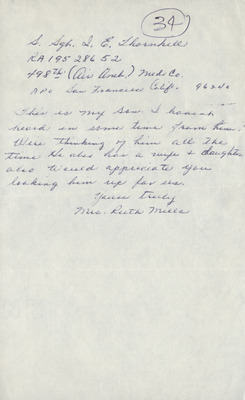 34
S. Sgt. I. E. Thornhill
RA 195 286 52
498th (Air Amb.) Med Co.
APO San Francisco Calif. 96240
This is my Son I havent
heard in some time from him.
Were thinking of him all the
time He also has a wife & daughter
also Would appreciate you
looking him up for us.
Yours truly
Mrs. Ruth Mills